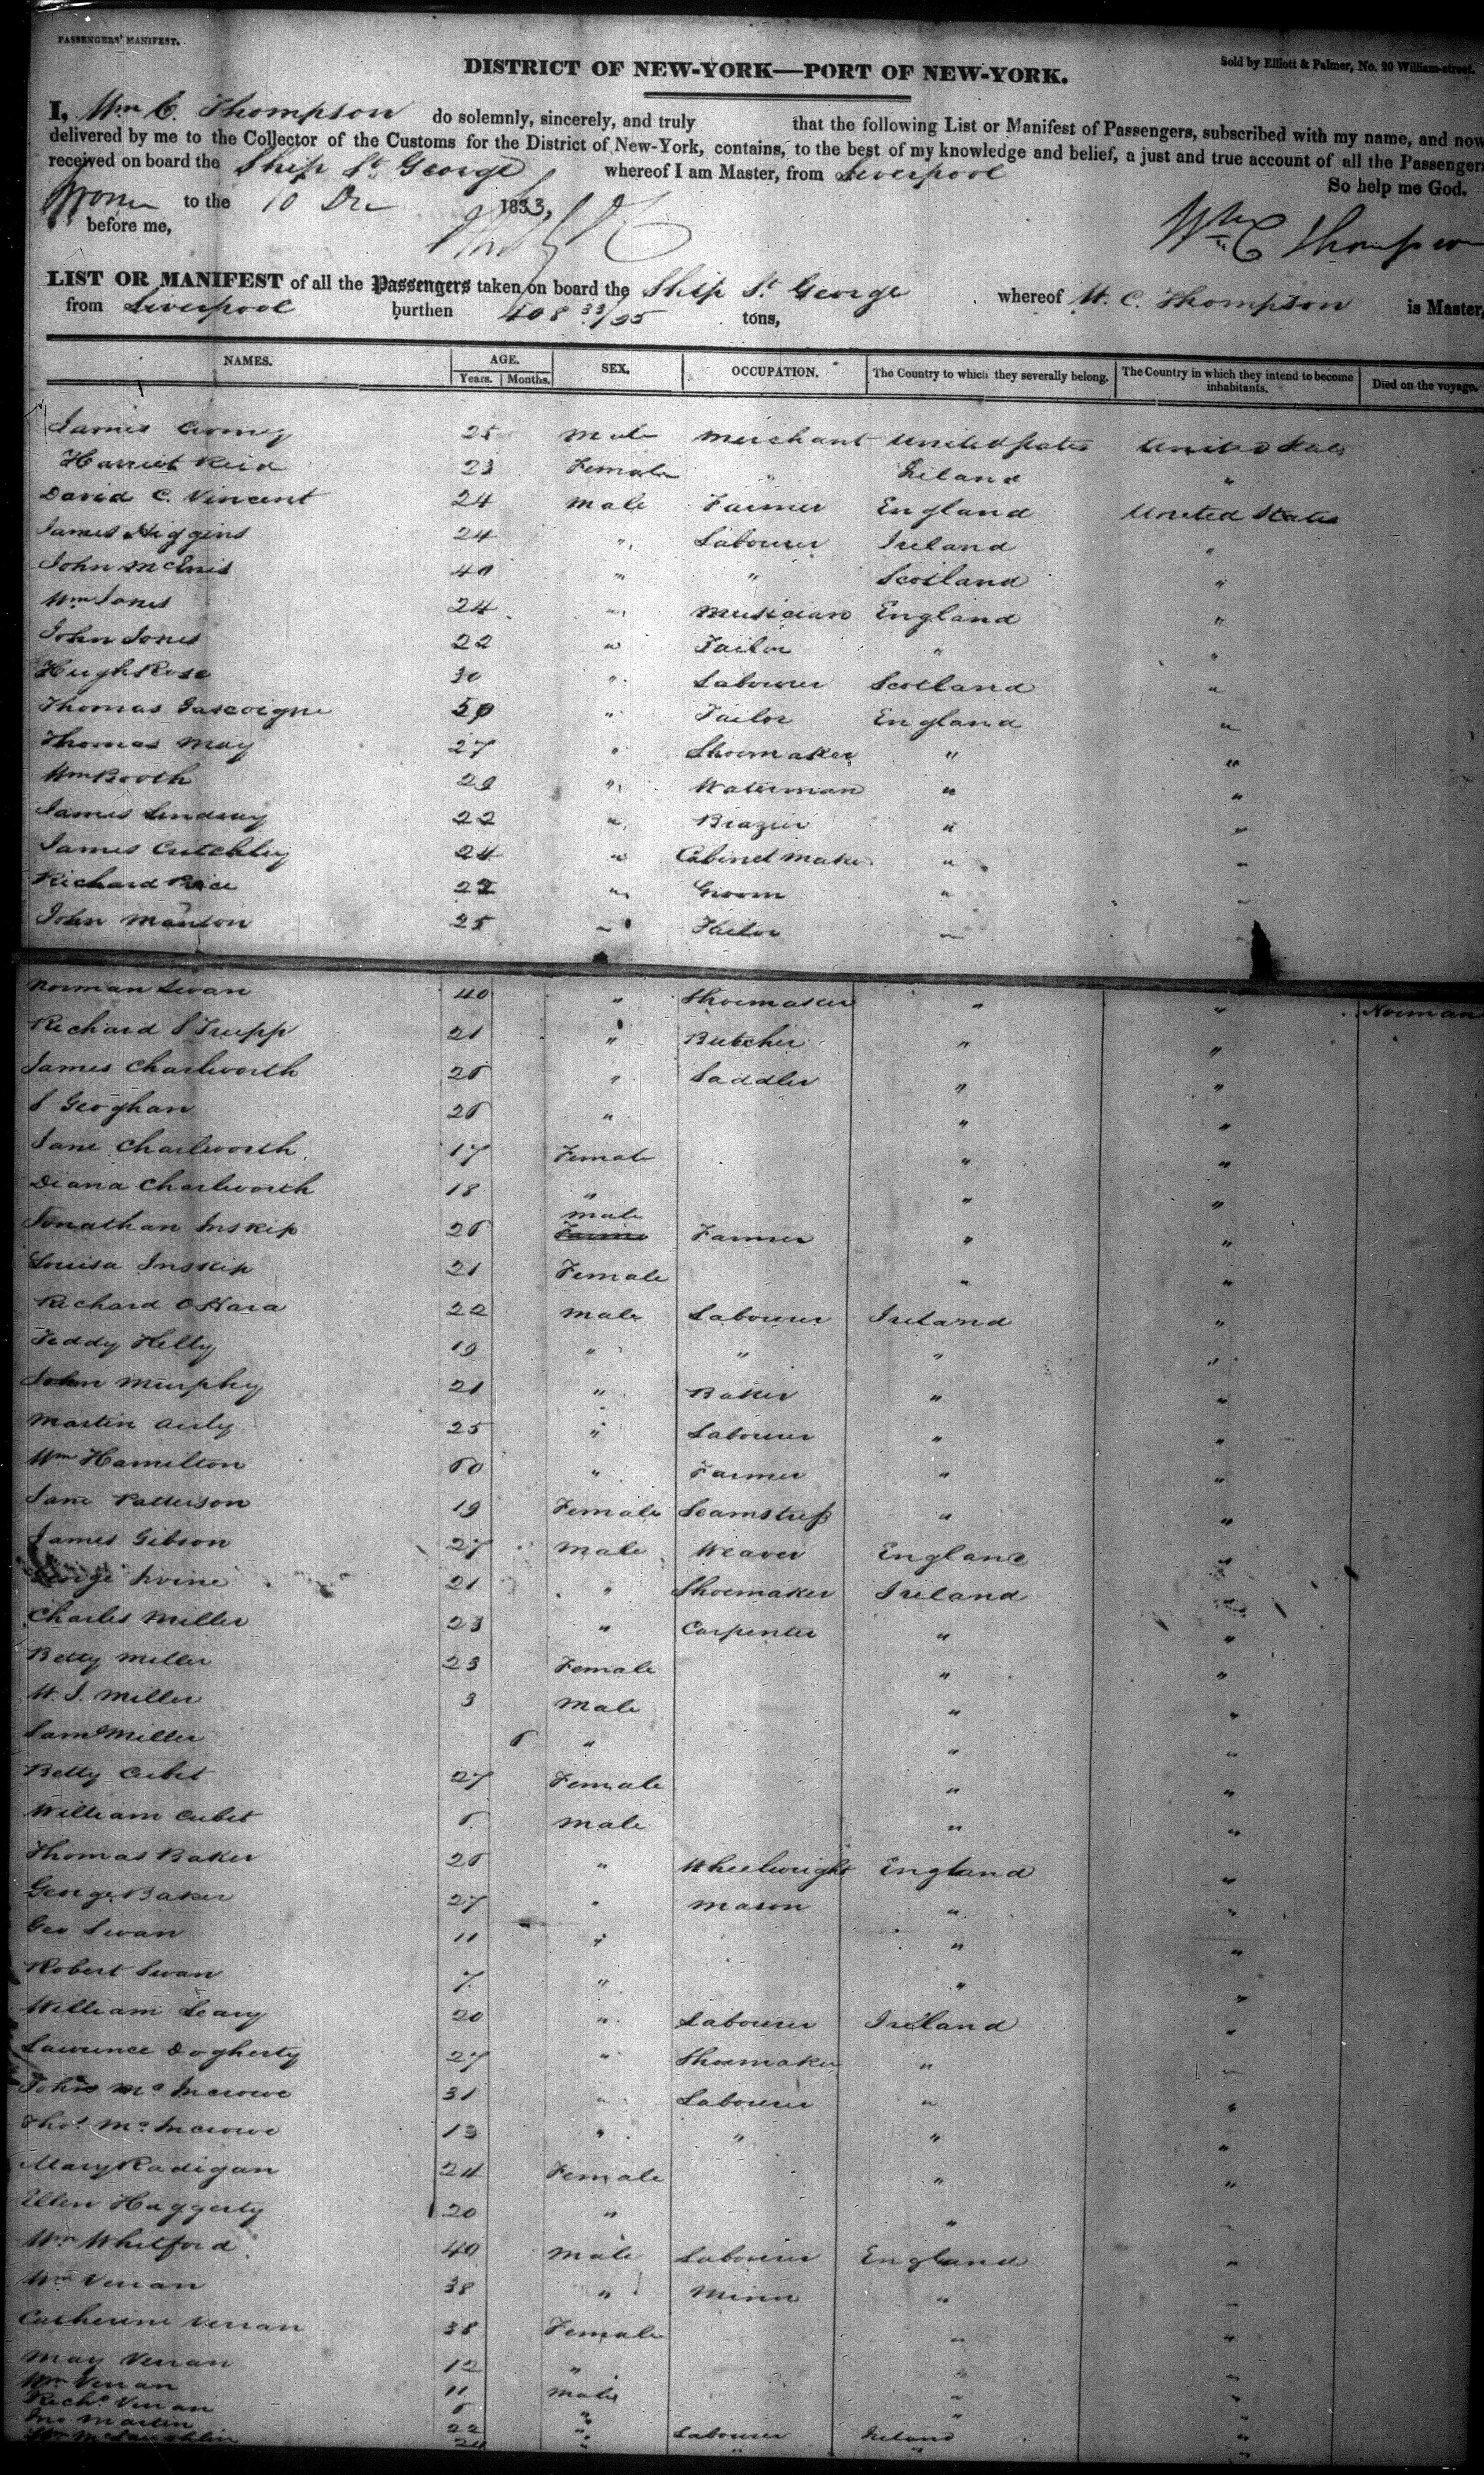 PASSENGERS' MANIFEST.
Sold by Elliott & Palmer, No. 20 William-street.
DISTRICT OF NEW-YORK—PORT OF NEW-YORK.
I, Wm C. Thompson do solemnly, sincerely, and truly that the following List or Manifest of Passengers, subscribed with my name, and now
delivered by me to the Collector of the Customs for the District of New-York, contains, to the best of my knowledge and belief, a just and true account of all the Passengers
received on board the Ship St. George whereof I am Master, from Liverpool
So help me God.
Sworn to the 10 Dec 1833,
before me, Wm C Thompson
LIST OR MANIFEST of all the Passengers taken on board the Ship St. George whereof W. C. Thompson is Master,
from Liverpool burthen 408 33/95 tons,
NAMES. AGE. SEX. OCCUPATION. The Country to which they severally belong. The Country in which they intend to become inhabitants. Died on the voyage.
Years. Months.
James 25 Male Merchant United States United States
Harriet Reid 23 Female " Ireland "
David C. Vincent 24 Male Farmer England United States
James Higgins 24 " Labourer Ireland "
John McEnis 40 " " Scotland "
Wm Jones 24 " Musician England "
John Jones 22 " Tailor " "
Hugh Rose 30 " Labourer Scotland "
Thomas Gascoigne 50 " Tailor England "
Thomas May 27 " Shoemaker " "
Wm Booth 21 " Waterman " "
James Lindsay 22 " Brazier " "
James Critchley 24 " Cabinet Maker " "
Richard Price 22 " Groom " "
John Manton 25 " Tailor " "
Norman Swan 40 " Shoemaker " " Norman
Richard S Trupp 21 " Butcher " "
James Charlworth 26 " Saddler " "
S Geoghan 26 " " "
Jane Charlworth 17 Female " "
Diana Charlworth 18 " " "
Jonathan Inskip 26 Male Farmer " "
Louisa Inskip 21 Female " "
Richard OHara 22 Male Labourer Ireland "
Teddy Kelly 19 " " " "
John Murphy 21 " Baker " "
Martin 25 " Labourer " "
Wm Hamilton 60 " Farmer " "
Jane Patterson 19 Female Seamstress " "
James Gibson 27 Male Weaver England "
George Irvine 21 " Shoemaker Ireland "
Charles Miller 23 " Carpenter " "
Betty Miller 23 Female " "
W. J. Miller 3 Male " "
Saml Miller 6 " " "
Betty Cubit 27 Female " "
William Cubit 6 Male " "
Thomas Baker 26 " Wheelwright England "
George Baker 27 " Mason " "
Geo Swan 11 " " "
Robert Swan 7 " " "
William Leary 20 " Labourer Ireland "
Lawrence Dogherty 27 " Shoemaker " "
John Mc Incrowe 31 " Labourer " "
Thos Mc Incrowe 13 " " " "
Mary Radigan 24 Female " "
Ellen Haggerty 20 " "
Wm Whitford 40 Male Labourer England "
Wm Verran 38 " Miner " "
Catherine Verran 38 Female " "
May Verran 12 " " "
Wm Verran 11 Male " "
Richd Verran 6 " " "
Jno Martin 22 " Labourer Ireland "
Wm McLaughlin 24 " " " "